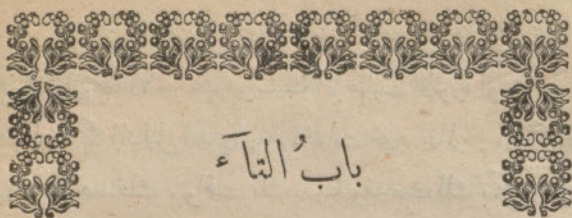 بابُ التآء